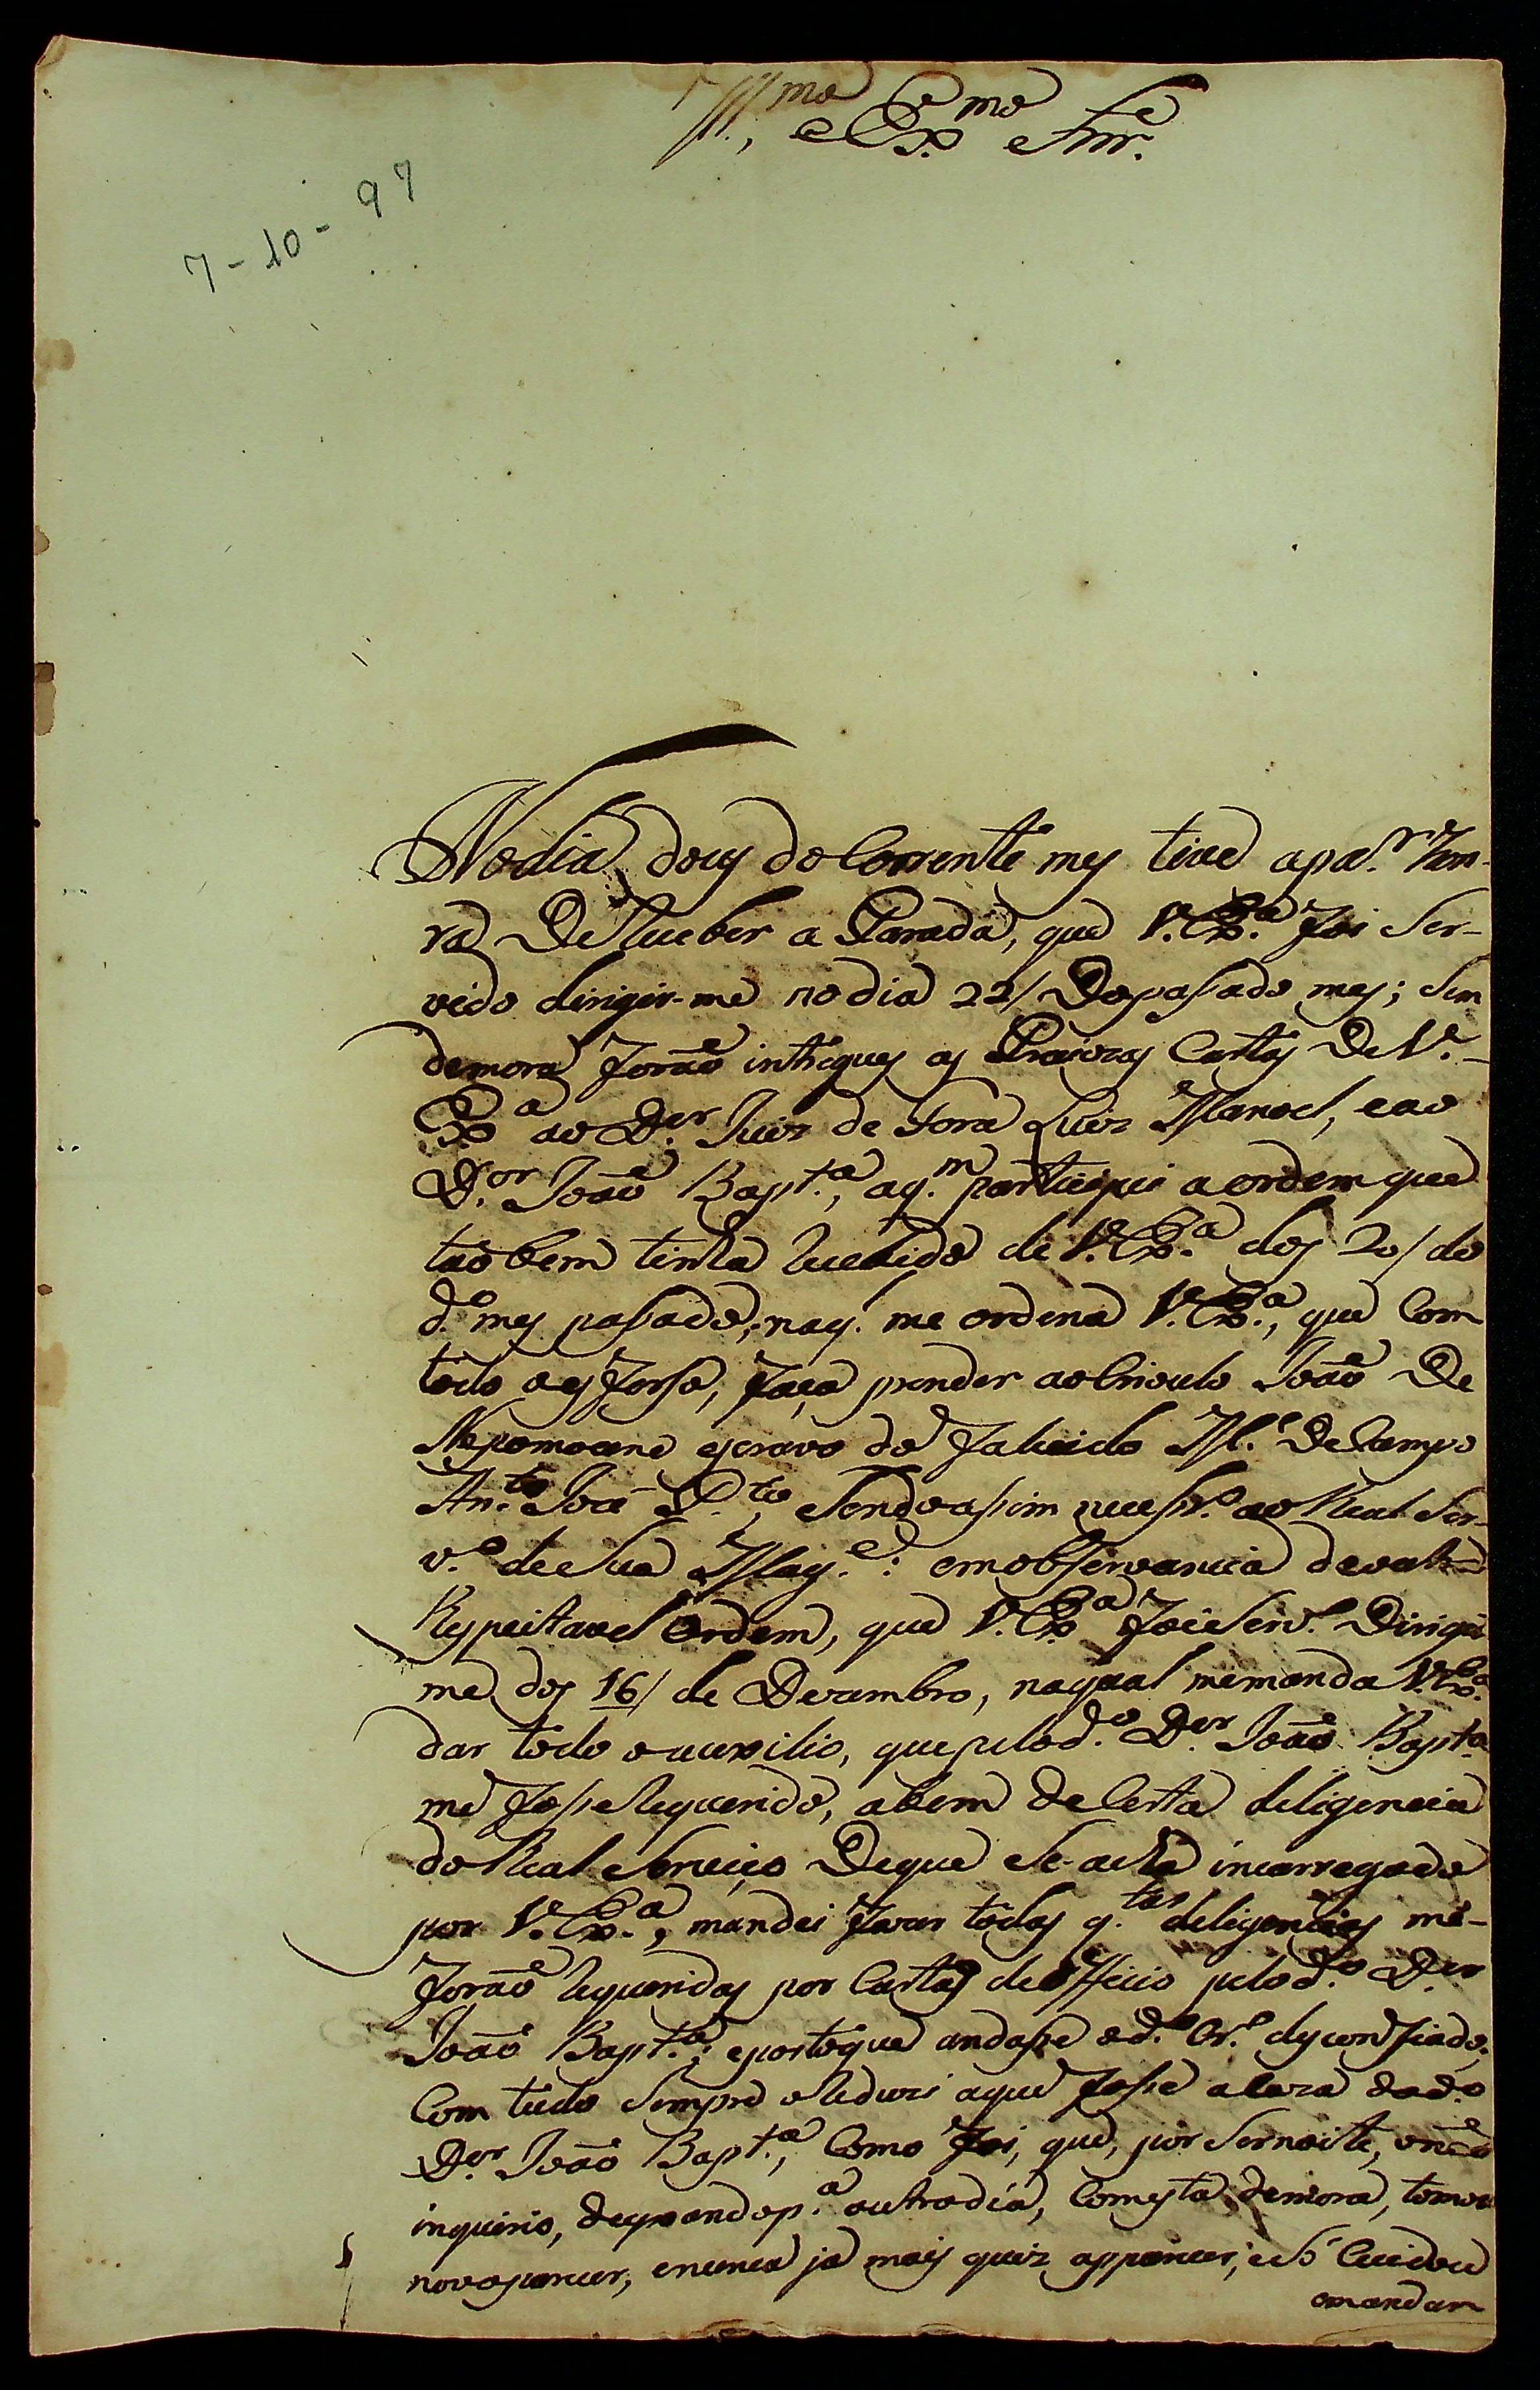 Ill.mo e Ex.mo Snr.
7-10-97
No dia doys do Corrente mes tive a par. hon-
ra De Receber a Parada, que V. Ex.a foi Ser-
vido dirigir-me no dia 22/ Do pasado mes; Sem
demora forão intregues as Cartas De V.
Ex.a ao D.or Juiz de Fora Luiz Manoel, e ao
D.or João Bapt.a, a q.m participei a ordem que
tãobem tinha recebido de V. Ex.a dos 20/ do
d.o mes pasado, na q.l me ordena V. Ex.a, que Com
todo o esforso, faça prender ao Crioulo João De
Nepomoceno escravo do falecido M.e De Campo
An.to José D.to, Sendo asim necesr.o ao Real Ser-
v.o de Sua Mag.e: em observancia de outra
Respeitavel Ordem, que V. Ex.a foi Serv.o Dirigir
me dos 16/ de Dezembro, na qual me manda V. Ex.a
dar todo o auxilio, que pelo d.o D.or João Bapt.a
me fose requerido, a bem de Certa deligencia
do Real Serviço De que Se acha incarregado
por V. Ex.a, mandei fazer todas q.tas deligencias me-
forão requeridas por Cartas de Officio pelo d.o D.or
João Bapt.a; e posto que andase o d.o Cr.o desconfiado,
Com tudo Sempre o reduzi a que fose a Caza do d.o
D.or João Bapt.a, Como foi, que, por Ser noite, o não
inquirio, deyxando p.a outro dia, Com esta demora, tomou
novo parecer, e nunca já mais quiz apparecer; e Só Cuidou
em andar